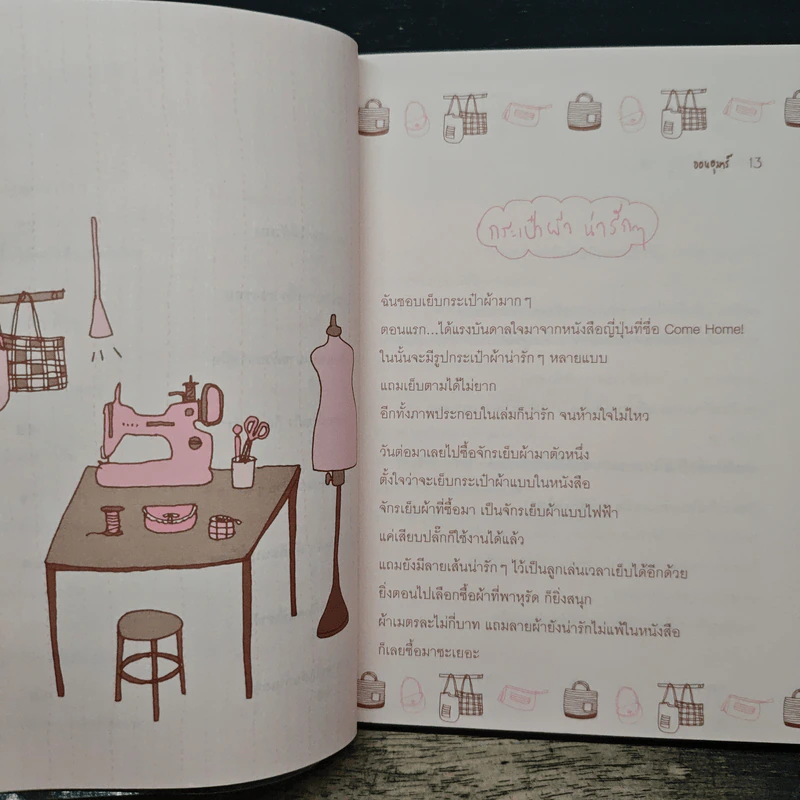 ออนอุมทร์ 13
กระเป๋าผ้า น่ารักๆ
ฉันชอบเย็บกระเป๋าผ้ามาก ๆ
ตอนแรก...ได้แรงบันดาลใจมาจากหนังสือญี่ปุ่นที่ชื่อ Come Home!
ในนั้นจะมีรูปกระเป๋าผ้าน่ารัก ๆ หลายแบบ
แถมเย็บตามได้ไม่ยาก
อีกทั้งภาพประกอบในเล่มก็น่ารัก จนห้ามใจไม่ไหว
วันต่อมาเลยไปซื้อจักรเย็บผ้ามาตัวหนึ่ง
ตั้งใจว่าจะเย็บกระเป๋าผ้าแบบในหนังสือ
จักรเย็บผ้าที่ซื้อมา เป็นจักรเย็บผ้าแบบไฟฟ้า
แค่เสียบปลั๊กก็ใช้งานได้แล้ว
แถมยังมีลายเส้นน่ารัก ๆ ไว้เป็นลูกเล่นเวลาเย็บได้อีกด้วย
ยิ่งตอนไปเลือกซื้อผ้าที่พาหุรัด ก็ยิ่งสนุก
ผ้าเมตรละไม่กี่บาท แถมลายผ้ายังน่ารักไม่แพ้ในหนังสือ
ก็เลยซื้อมาซะเยอะ